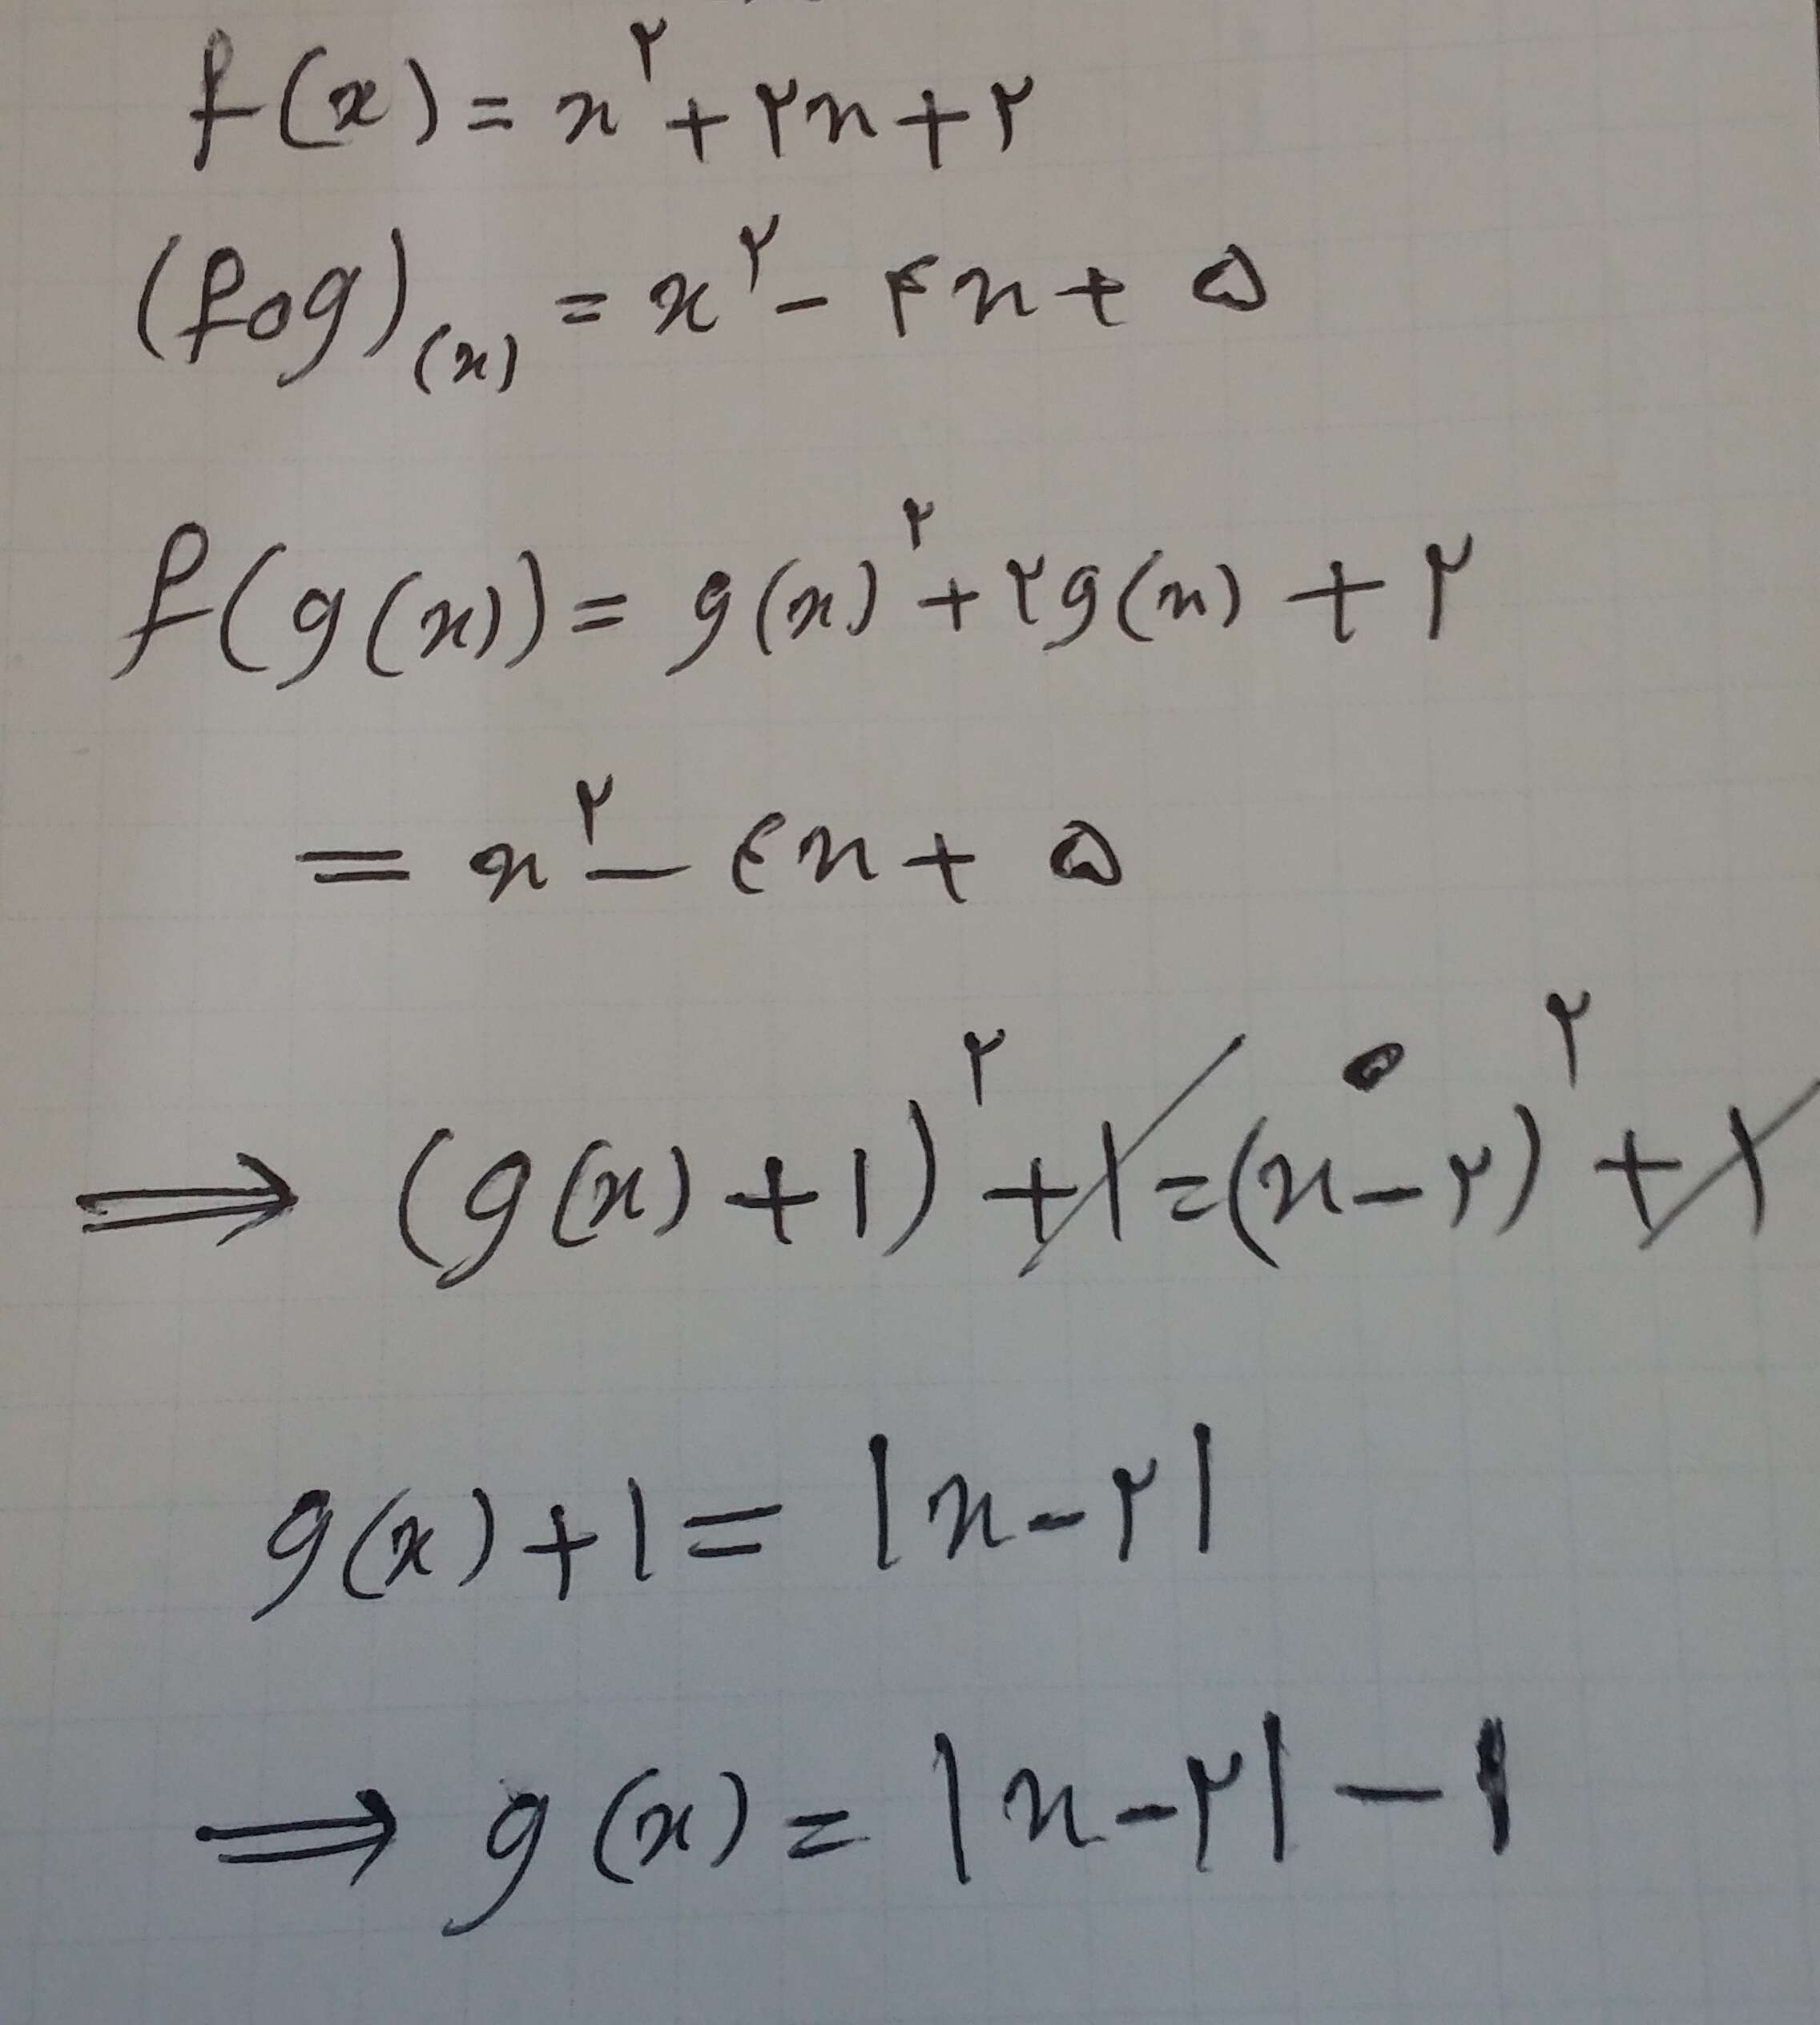 f(x) = x^۲ + ۲x + ۲
(fog)(x) = x^۲ - ۴x + ۵
f(g(x)) = g(x)^۲ + ۲g(x) + ۲
= x^۲ - ۴x + ۵
⇒ (g(x) + ۱)^۲ + ۱ = (x - ۲)^۲ + ۱
g(x) + ۱ = |x - ۲|
⇒ g(x) = |x - ۲| - ۱